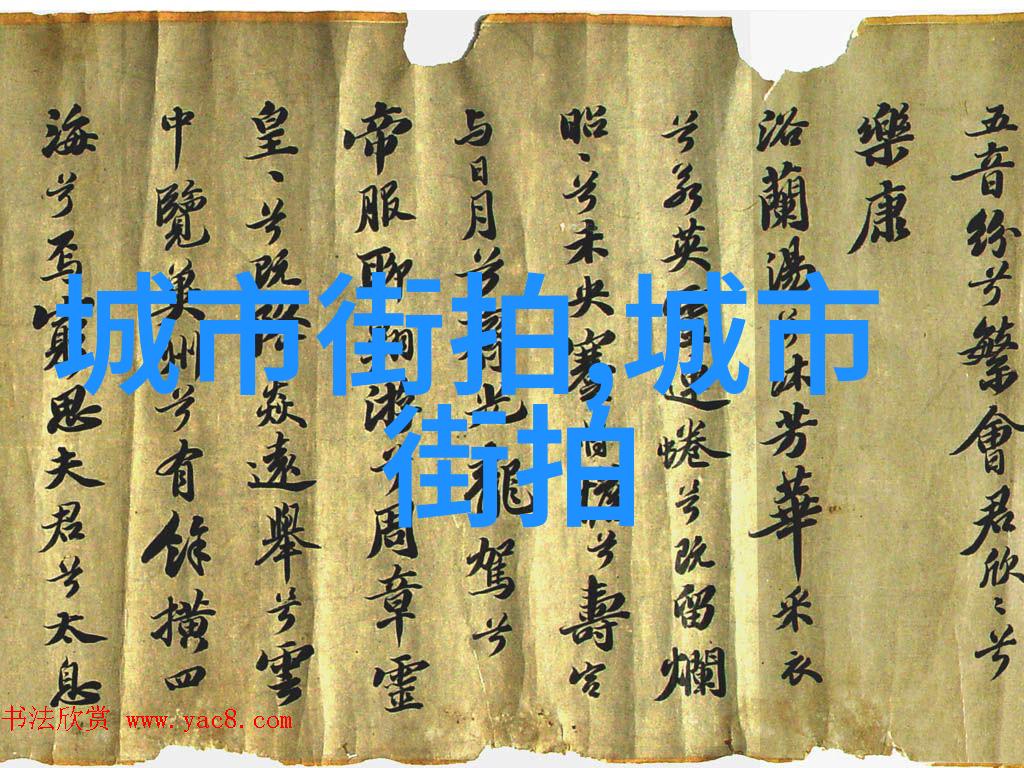 五音紛兮繁會君欣〻兮
樂康
浴蘭湯兮沐芳華采衣
兮若英靈連蜷兮既留爛
昭〻兮未央蹇兮壽宮
与日月兮齊光龍駕兮
帝服聊翱游兮周章靈
皇〻兮既降焱遠舉兮雲
中覽兾州兮有餘横四
海兮焉窮思夫君兮太息
城市街拍,城市
街拍
书法欣赏 www.yac8.com